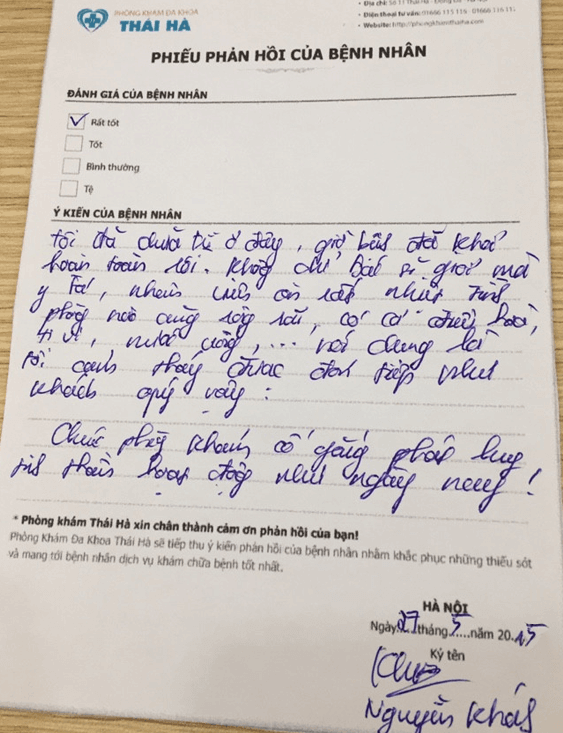 PHÒNG KHÁM ĐA KHOA
THÁI HÀ
• Địa chỉ: Số 11 Thái Hà - Đống Đa -
• Điện thoại tư vấn: 01666 115 116 - 01666 116 117
• Website: http://phongkhamthaiha.com
PHIẾU PHẢN HỒI CỦA BỆNH NHÂN
ĐÁNH GIÁ CỦA BỆNH NHÂN
Rất tốt
Tốt
Bình thường
Tệ
Ý KIẾN CỦA BỆNH NHÂN
Tôi đã chữa trị ở đây, giờ bây đã khỏi
hoàn toàn rồi. Không chỉ bác sĩ giỏi mà
y tá, nhân viên còn rất nhiệt tình
phòng nào cũng rộng rãi, có cả điều hoà,
ti vi, nước uống, ... nói chung là
tôi cảm thấy được đón tiếp như
khách quý vậy.
Chúc phòng khám cố gắng phát huy
tinh thần hoạt động như ngày nay!
* Phòng khám Thái Hà xin chân thành cảm ơn phản hồi của bạn!
Phòng Khám Đa Khoa Thái Hà sẽ tiếp thu ý kiến phản hồi của bệnh nhân nhằm khắc phục những thiếu sót
và mang tới bệnh nhân dịch vụ khám chữa bệnh tốt nhất.
HÀ NỘI
Ngày 27 tháng 5 năm 2015
Ký tên
Nguyễn Khánh